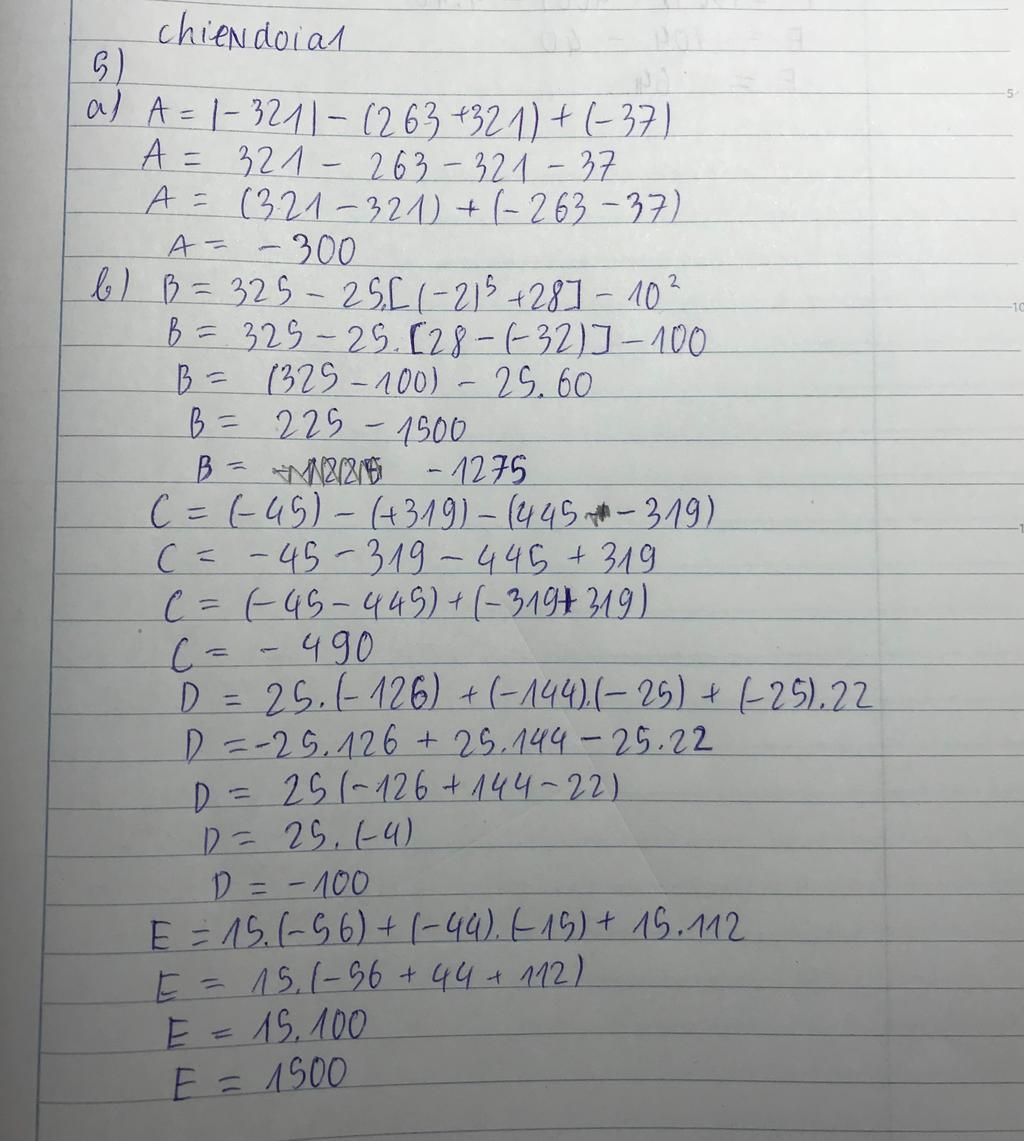 chiendoia1
5)
a) A = |-321| - (263 + 321) + (-37)
A = 321 - 263 - 321 - 37
A = (321 - 321) + (-263 - 37)
A = - 300
b) B = 325 - 25.[(-2)⁵ + 28] - 10²
B = 325 - 25.[28 - (-32)] - 100
B = (325 - 100) - 25.60
B = 225 - 1500
B = -1275
C = (-45) - (+319) - (445 - 319)
C = -45 - 319 - 445 + 319
C = (-45 - 445) + (-319 + 319)
C = - 490
D = 25.(-126) + (-144).(-25) + (-25).22
D = -25.126 + 25.144 - 25.22
D = 25(-126 + 144 - 22)
D = 25.(-4)
D = -100
E = 15.(-56) + (-44).(-15) + 15.112
E = 15.(-56 + 44 + 112)
E = 15.100
E = 1500